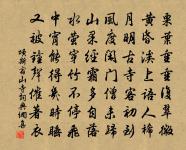 栗葉重重復翠微
黃昏溪上語人稀
月明古寺客初到
風度閑門僧未歸
山果經霜多自落
水螢穿竹不停飛
中宵能得幾時睡
又被鐘聲催著衣
項斯宿山寺詞典網書